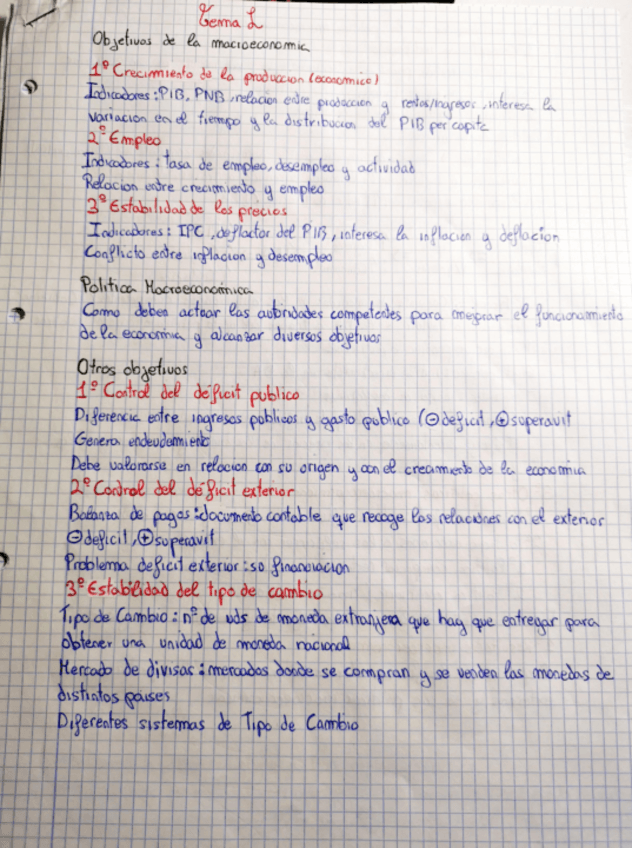 Tema 1
Objetivos de la macroeconomia
1º Crecimiento de la produccion (economico)
Indicadores: PIB, PNB, relacion entre produccion y rentas/ingresos, interesa la
variacion en el tiempo y la distribucion del PIB per capita
2º Empleo
Indicadores: tasa de empleo, desempleo y actividad
Relacion entre crecimiento y empleo
3º Estabilidad de los precios
Indicadores: IPC, deflactor del PIB, interesa la inflacion y deflacion
Conflicto entre inflacion y desempleo
Politica Macroeconómica
Como deben actuar las autoridades competentes para mejorar el funcionamiento
de la economia y alcanzar diversos objetivos
Otros objetivos
1º Control del déficit publico
Diferencia entre ingresos publicos y gasto publico (⊖deficit, ⊕superavit
Genera endeudamiento
Debe valorarse en relacion con su origen y con el crecimiento de la economia
2º Control del déficit exterior
Balanza de pagos: documento contable que recoge las relaciones con el exterior
⊖deficit, ⊕superavit
Problema deficit exterior: su financiacion
3º Estabilidad del tipo de cambio
Tipo de Cambio: nº de uds de moneda extranjera que hay que entregar para
obtener una unidad de moneda nacional
Mercado de divisas: mercados donde se compran y se venden las monedas de
distintos paises
Diferentes sistemas de Tipo de Cambio